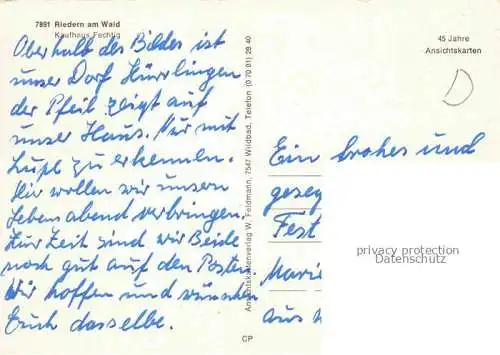 7891 Riedern am Wald
Kaufhaus Fechtig
Oberhalb des Bildes ist
unser Dorf Hürrlingen
der Pfeil zeigt auf
unser Haus. Nur mit
Lupe zu erkennen.
Hir wollen wir unsern
Lebensabend verbringen.
Zur Zeit sind wir Beide
noch gut auf den Posten.
Wir hoffen und wünschen
Euch dasselbe.
Ansichtskartenverlag W. Feldmann, 7547 Wildbad, Telefon (0 70 81) 28 40
CP
45 Jahre
Ansichtskarten
Ein frohes und
geseg
Fest
Mari
aus
privacy protection
Datenschutz